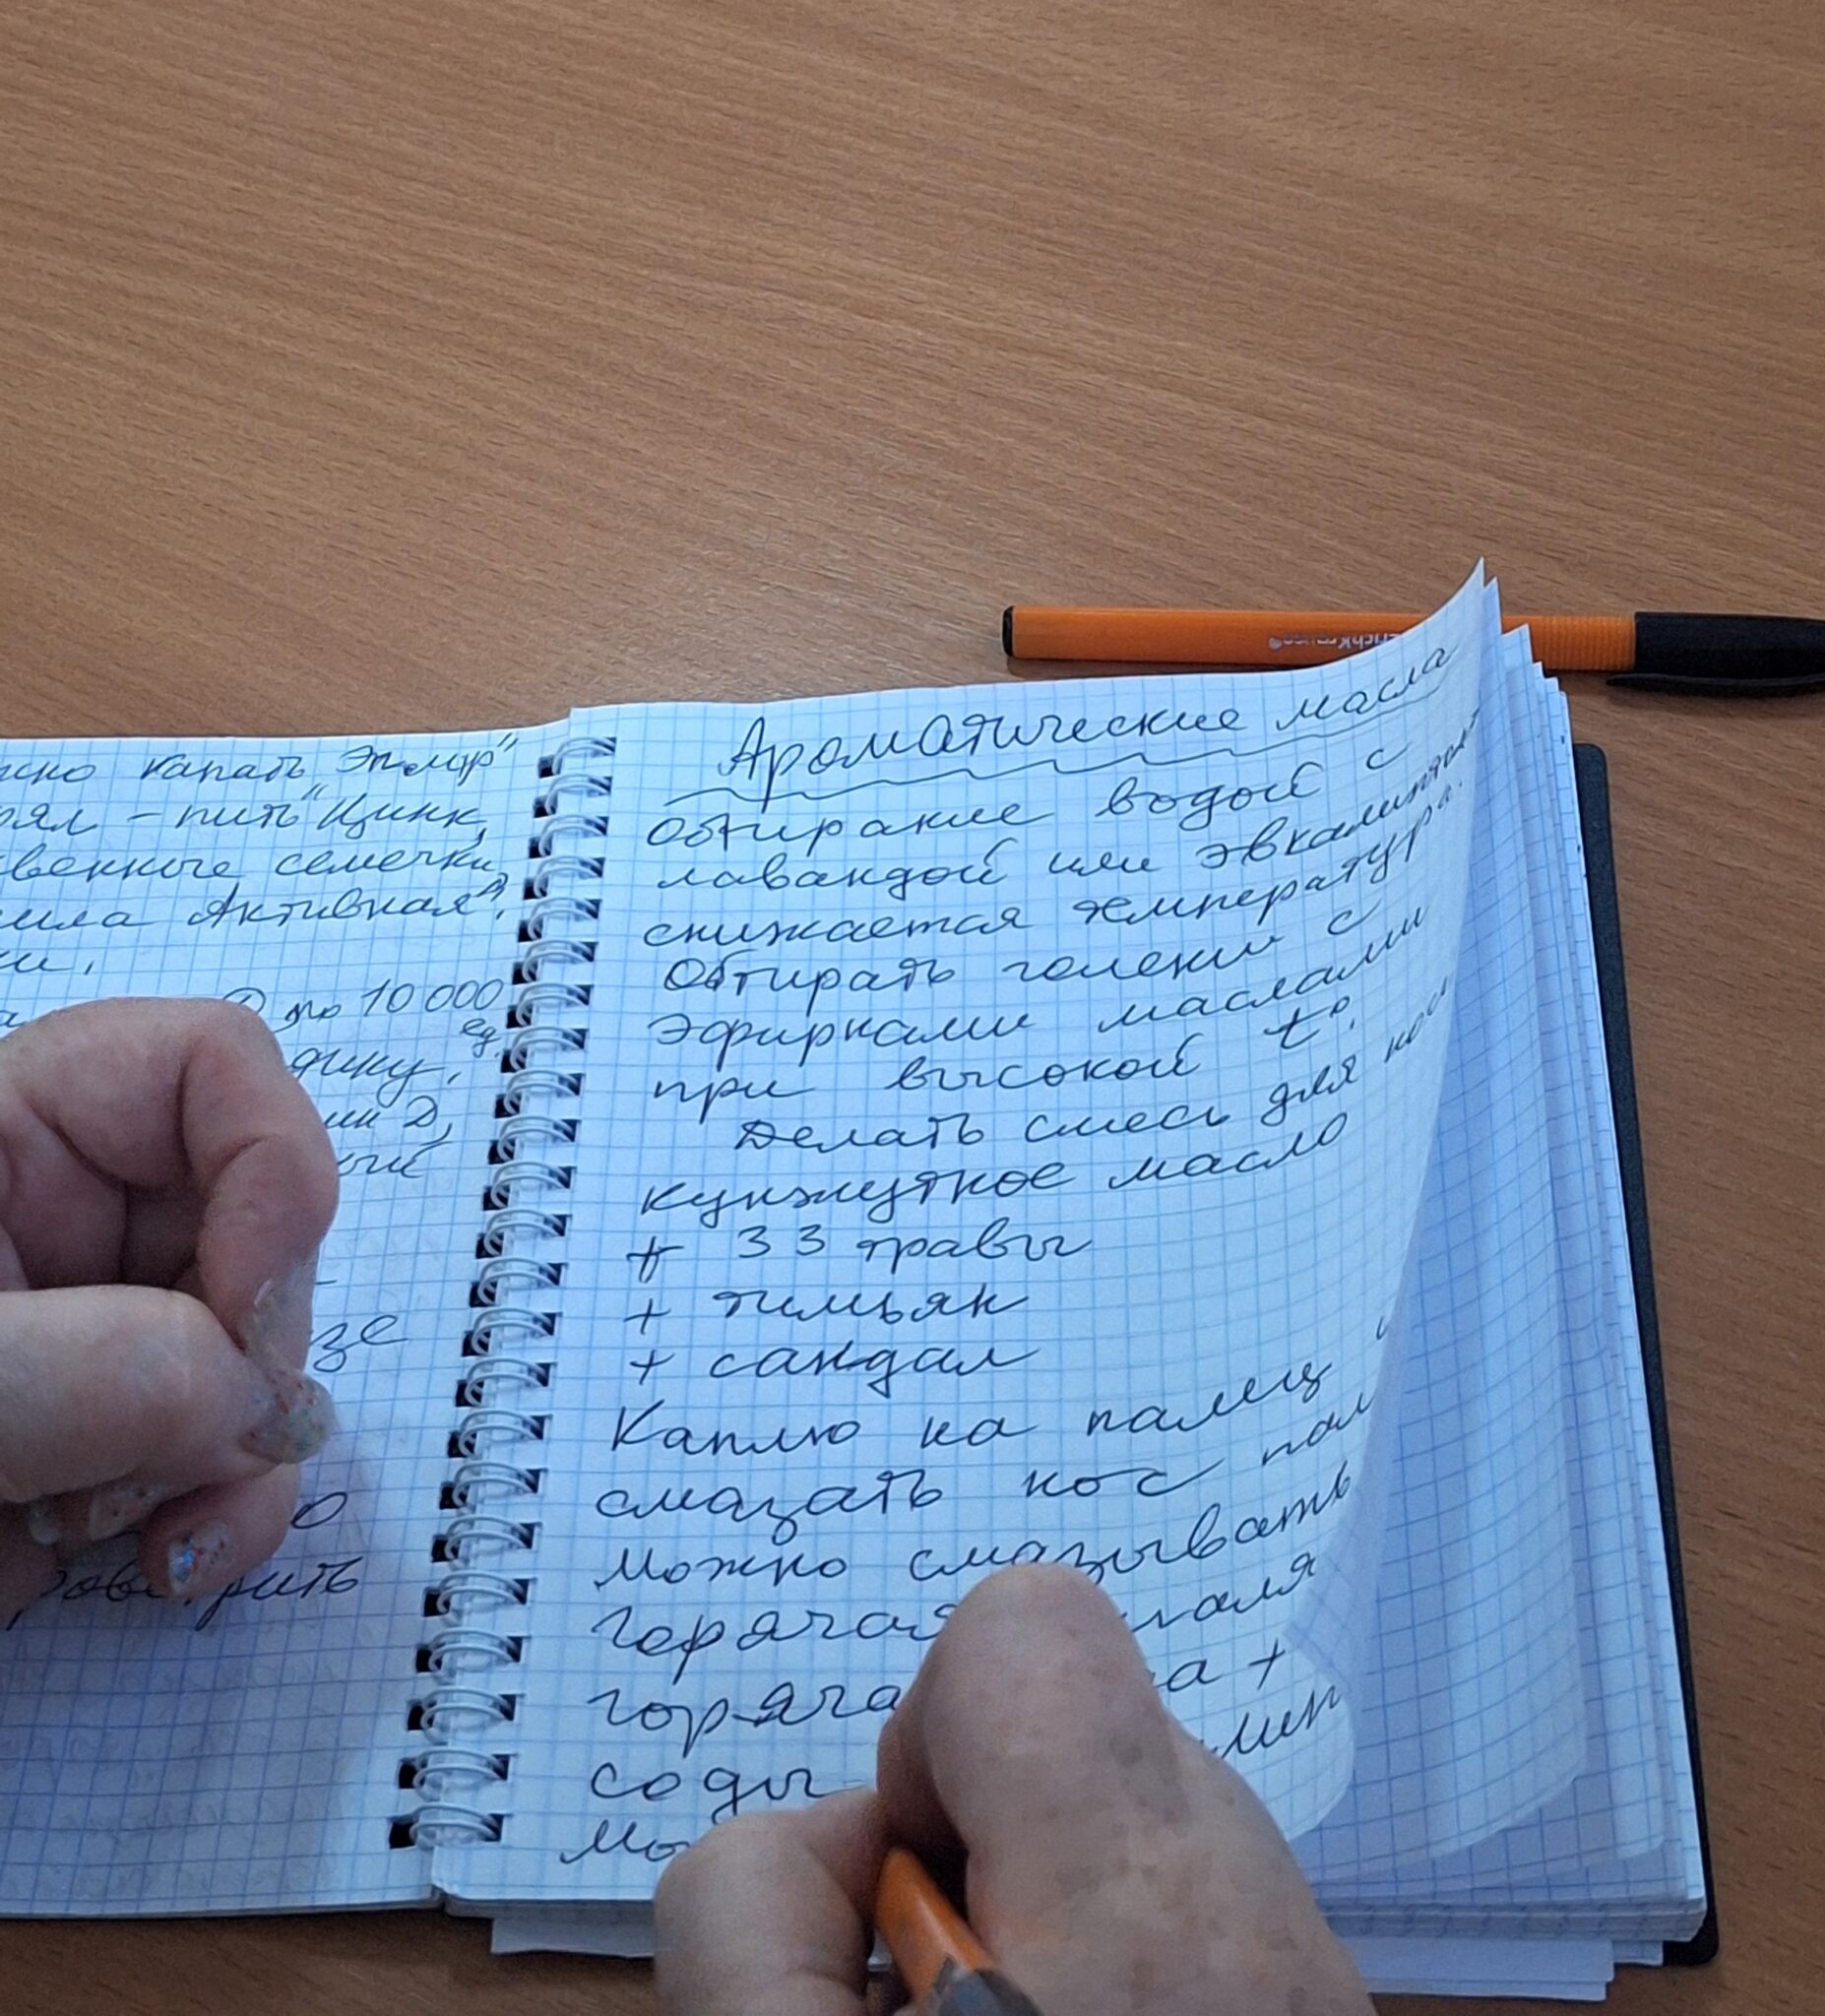 капать "Эплир"
- пить "Цинк,
семечки,
Активная",
по 10 000
ед.
Д,
зе
Ароматические масла
Обтирание водой с
лавандой или эвкалиптом
снижается температура.
Обтирать голени с
Эфирными маслами
при высокой t°.
Делать смесь для
кунжутное масло
+ 33 травы
+ тимьян
+ сандал
Каплю на палец и
смазать нос
Можно смазывать
Горячая
горяча +
соды
ErichKrause®